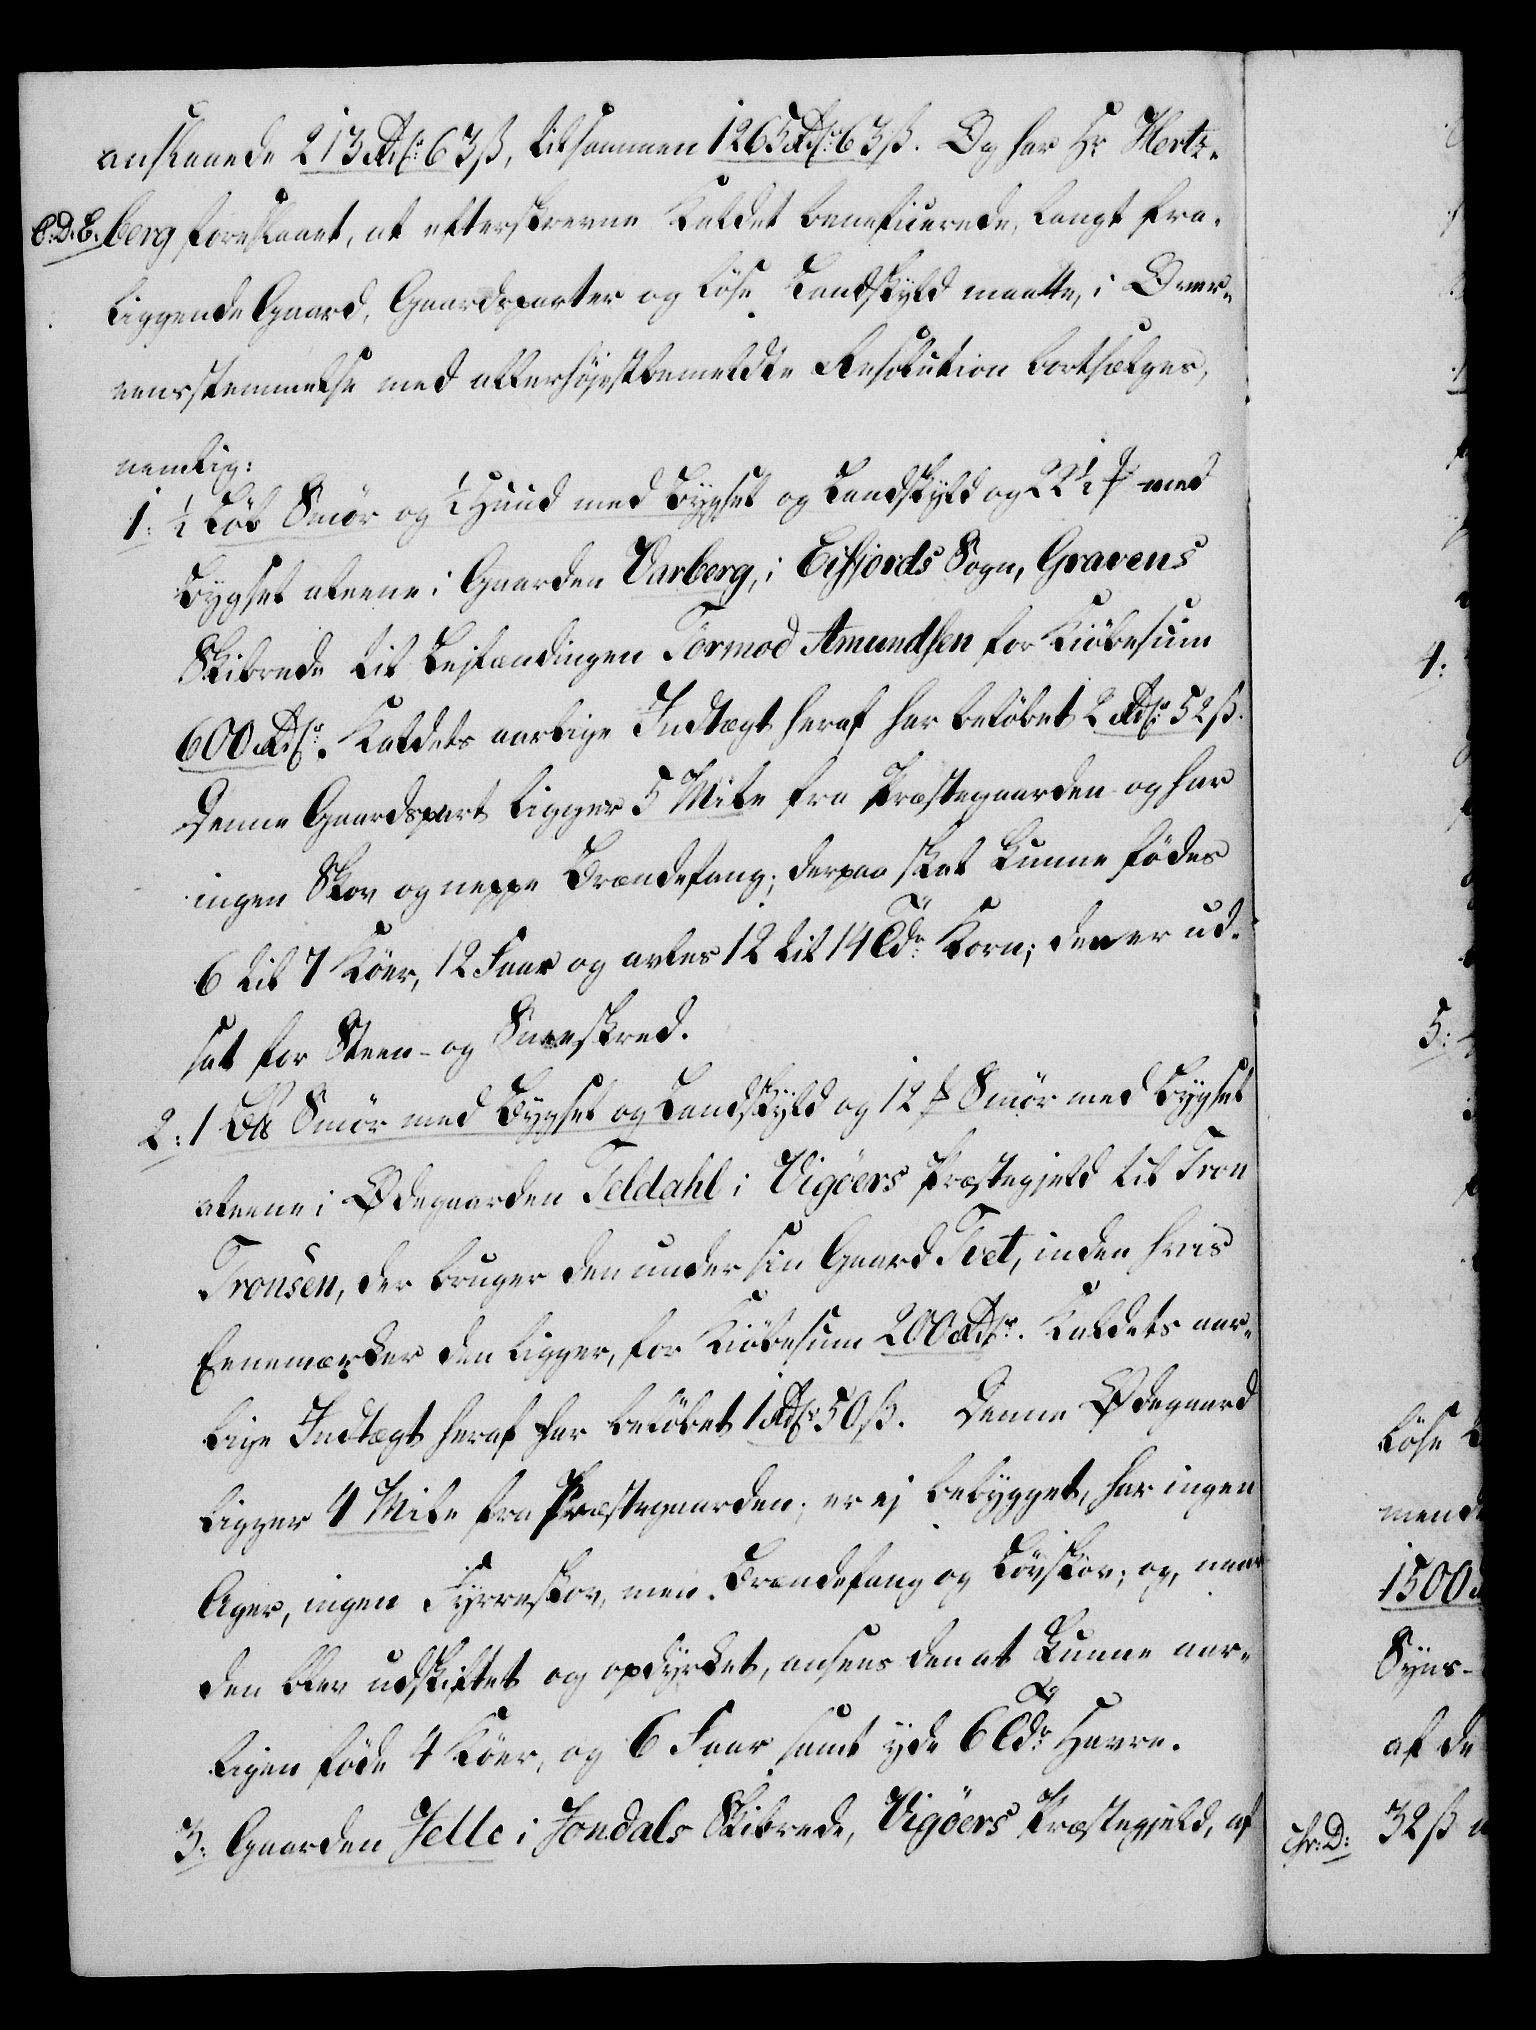 anslaaede 213 Rdlr: 63 ß, tilsammen 1265 Rdlr: 63 ß. Og har Hr Hertz-
C.D.E. berg foreslaaet, at efterskrevne Kaldet beneficerede, langt fra-
liggende Gaard, Gaardsparter og løse Landskyld maatte, i Over-
eensstemmelse med allerhøjestbemeldte Resolution bortsælges,
nemlig:
1: ½ Løb Smør og ½ Huud med Bygsel og Landskyld og 22½ ℔ med
Bygsel alleene i Gaarden Varberg, i Eifjords Sogn, Gravens
Skibrede til Leilændingen Tormod Amundsen for Kiöbesum
600 Rdlr. Kaldets aarlige Indtægt heraf har beløbet 2 Rdlr: 52 ß.
Denne Gaardspart ligger 5 Mile fra Præstegaarden og har
ingen Skov og neppe Brændefang; derpaa skal kunne fødes
6 til 7 Köer, 12 Faar og avles 12 til 14 Tdr Korn; den er ud-
sat for Steen- og Sneeskred.
2: 1 Løb Smör med Bygsel og Landskyld og 12 ℔ Smör med Bygsel
alleene i Ødegaarden Teldahl i Vigöers Præstegjeld til Tron
Tronsen, der bruger den under sin Gaard Tvet, inden hvis
Eenemærker den ligger, for Kiöbesum 200 Rdlr. Kaldets aar-
lige Indtægt heraf har beløbet 1 Rdlr: 50 ß. Denne Ødegaard
ligger 4 Mile fra Præstegaarden; er ej bebygget, har ingen
Ager, ingen Fyrreskov, men Brændefang og Lövskov; og, naar
den blev udskiftet og opdyrket, ansees den at kunne aar-
ligen föde 4 Köer, og 6 Faar samt yde 6 Tdr Havre.
3: Gaarden Jelle i Jondals Skibrede, Vigöers Præstegjeld, af
4:
5:
löse
mend
1500
Syns-
af de
Chr: D: 32 ß